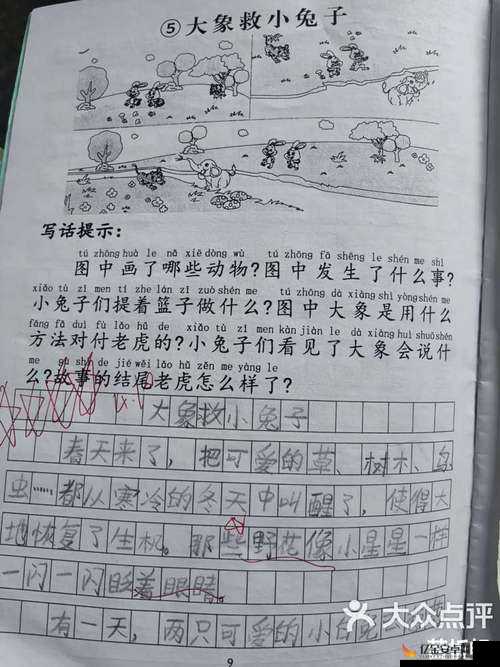 ⑤大象救小兔子
写话提示：
tú zhōng huà le nǎ xiē dòng wù tú zhōng fā shēng le shén me shì
图中画了哪些动物？图中发生了什么事？
xiǎo tù zi men tí zhe lán zi zuò shén me tú zhōng dà xiàng shì yòng shén me
小兔子们提着篮子做什么？图中大象是用什么
fāng fǎ duì fù lǎo hǔ de xiǎo tù zi men kàn jiàn le dà xiàng huì shuō shén
方法对付老虎的？小兔子们看见了大象会说什
me gù shi de jié wěi lǎo hǔ zěn me yàng le
么？故事的结尾老虎怎么样了？
大象救小兔子
春天来了，把可爱的草、树木、鸟
虫……都从寒冷的冬天中叫醒了，使得大
地恢复了生机。那些野花像小星星一样
一闪一闪眨着眼睛。
有一天，两只可爱的小白兔
9
大众点评
亿金安卓网